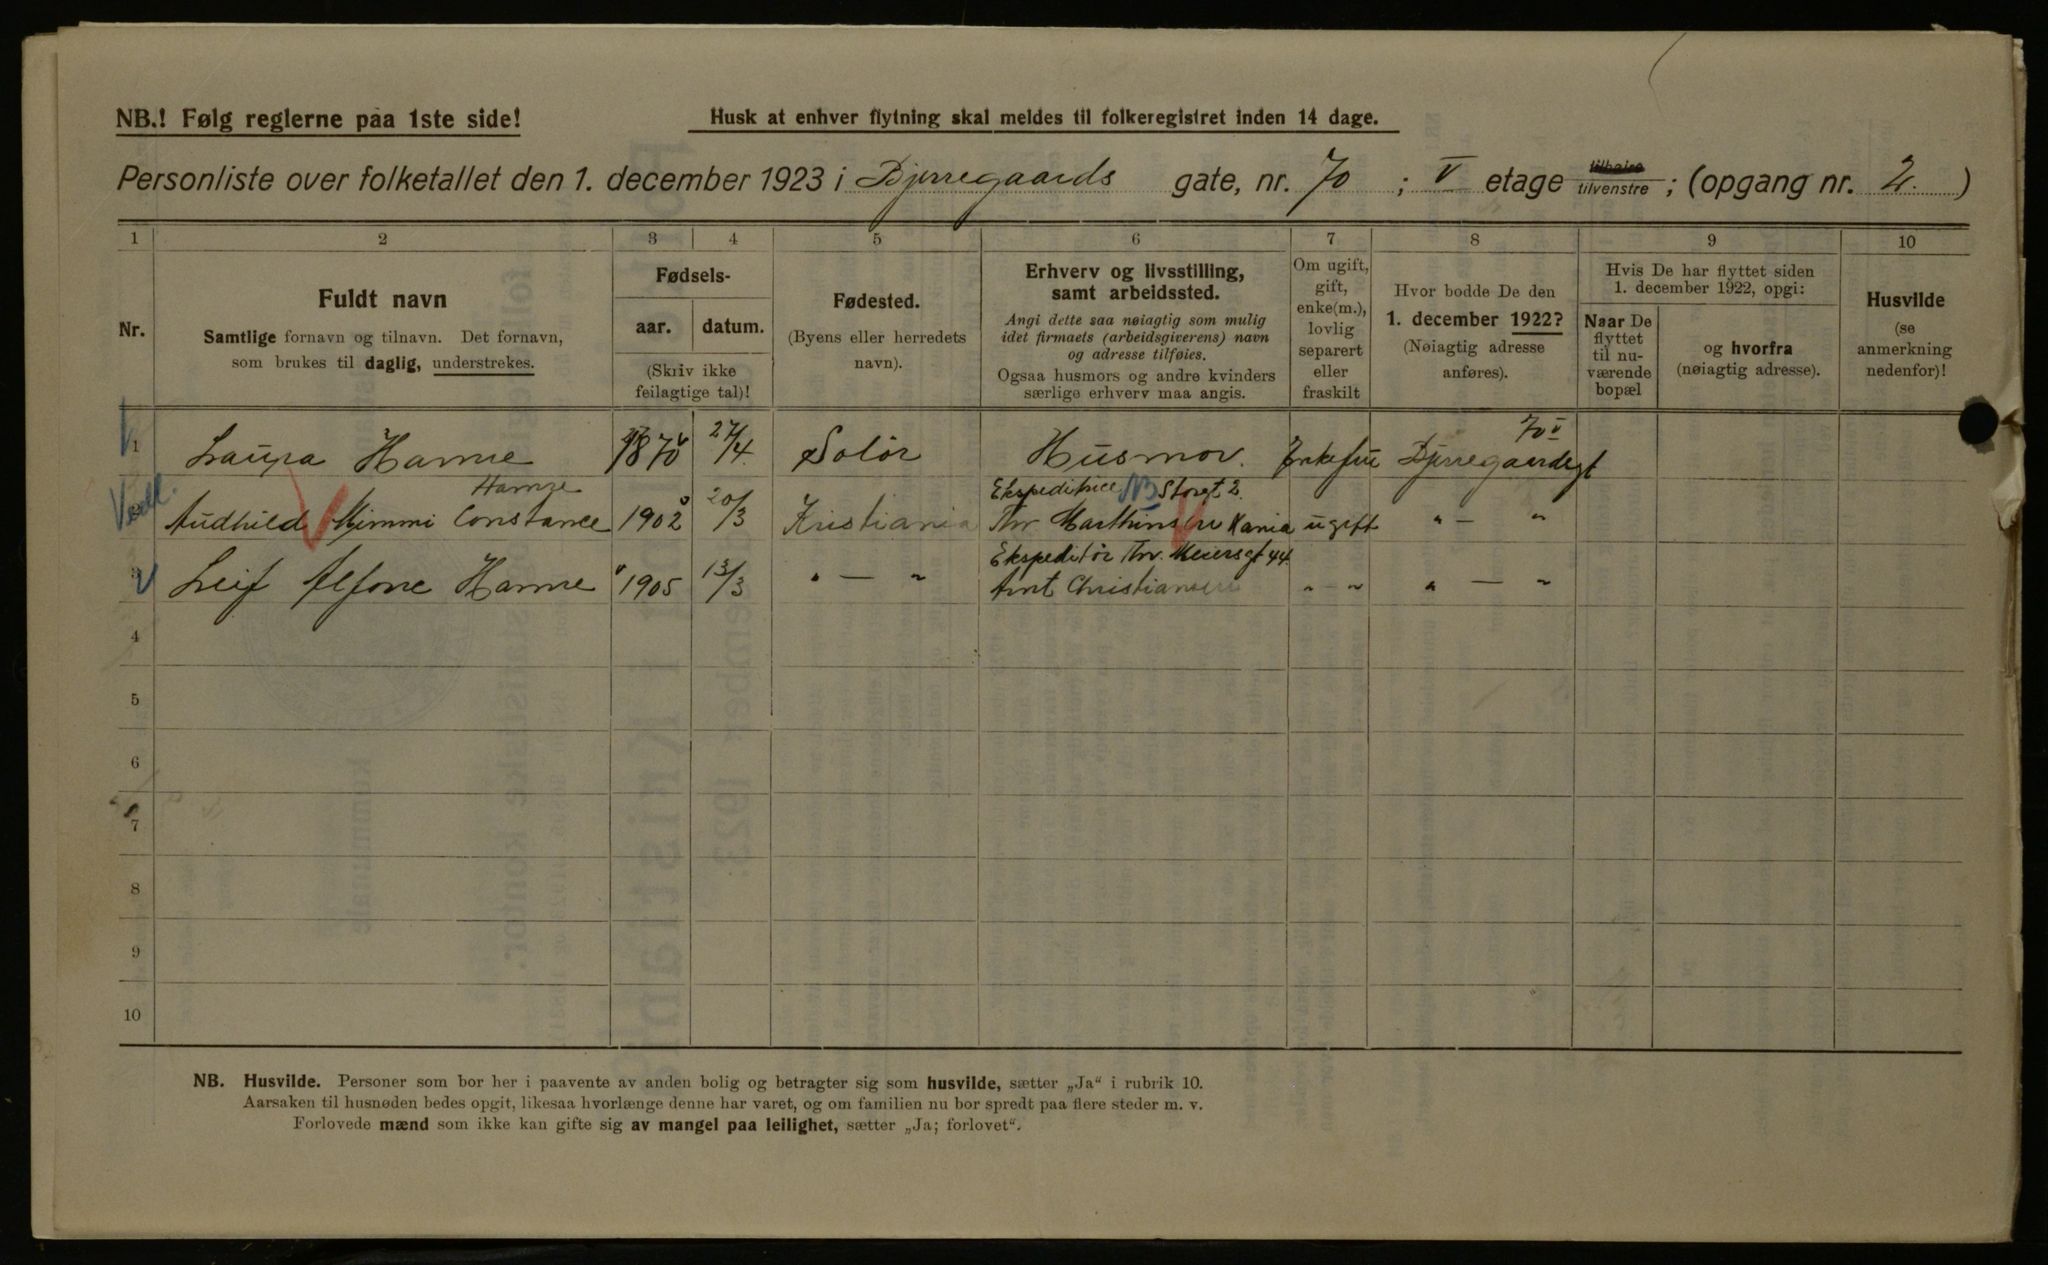 NB.! Følg reglerne paa 1ste side!
Husk at enhver flytning skal meldes til folkeregistret inden 14 dage.
Personliste over folketallet den 1. december 1923 i Bjerregaards gate, nr. 70 ; V etage tilhøire tilvenstre ; (opgang nr. 2. )
1 2 3 4 5 6 7 8 9 10
Nr.
Fuldt navn
Samtlige fornavn og tilnavn. Det fornavn,
som brukes til daglig, understrekes.
Fødsels-
aar. datum.
(Skriv ikke
feilagtige tal)!
Fødested.
(Byens eller herredets
navn).
Erhverv og livsstilling,
samt arbeidssted.
Angi dette saa nøiagtig som mulig
idet firmaets (arbeidsgiverens) navn
og adresse tilføies.
Ogsaa husmors og andre kvinders
særlige erhverv maa angis.
Om ugift,
gift,
enke(m.),
lovlig
separert
eller
fraskilt
Hvor bodde De den
1. december 1922?
(Nøiagtig adresse
anføres).
Hvis De har flyttet siden
1. december 1922, opgi:
Naar De
flyttet
til nu-
værende
bopæl
og hvorfra
(nøiagtig adresse).
Husvilde
(se
anmerkning
nedenfor)!
70 V
1 Laura Hamre 1870 27/4. Solør Husmor. Enkefru Bjerregaardsgt
Hamre Ekspeditrice NB Storgt 2.
Audhild Mimmi Constance 1902 20/3 Kristiania Thv Marthinsen Kania ugift " — "
Ekspeditør Thv. Meiersgt 44
3 Leif Alfone Hamre 1905 13/3 " — " Arnt Christiansen " — " " — "
4
5
6
7
8
9
10
NB. Husvilde. Personer som bor her i paavente av anden bolig og betragter sig som husvilde, sætter „Ja“ i rubrik 10.
Aarsaken til husnøden bedes opgit, likesaa hvorlænge denne har varet, og om familien nu bor spredt paa flere steder m. v.
Forlovede mænd som ikke kan gifte sig av mangel paa leilighet, sætter „Ja; forlovet“.